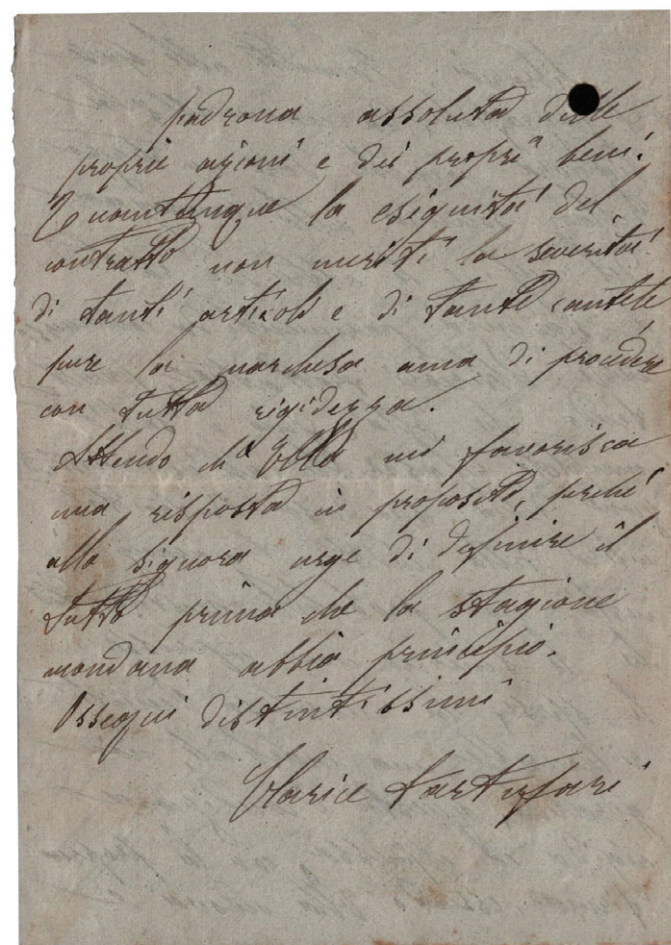 padrona assoluta delle
proprie azioni e dei propri beni.
Quantunque la esiguità del
contratto non meriti la severità
di tanti articoli e di tante cautele
pure la marchesa ama di procedere
con tutta rigidezza.
Attendo ch'Ella mi favorisca
una risposta in proposito, perché
alla signora urge di definire il
tutto prima che la stagione
mondana abbia principio.
Ossequi distintissimi
Clarice Tartufari